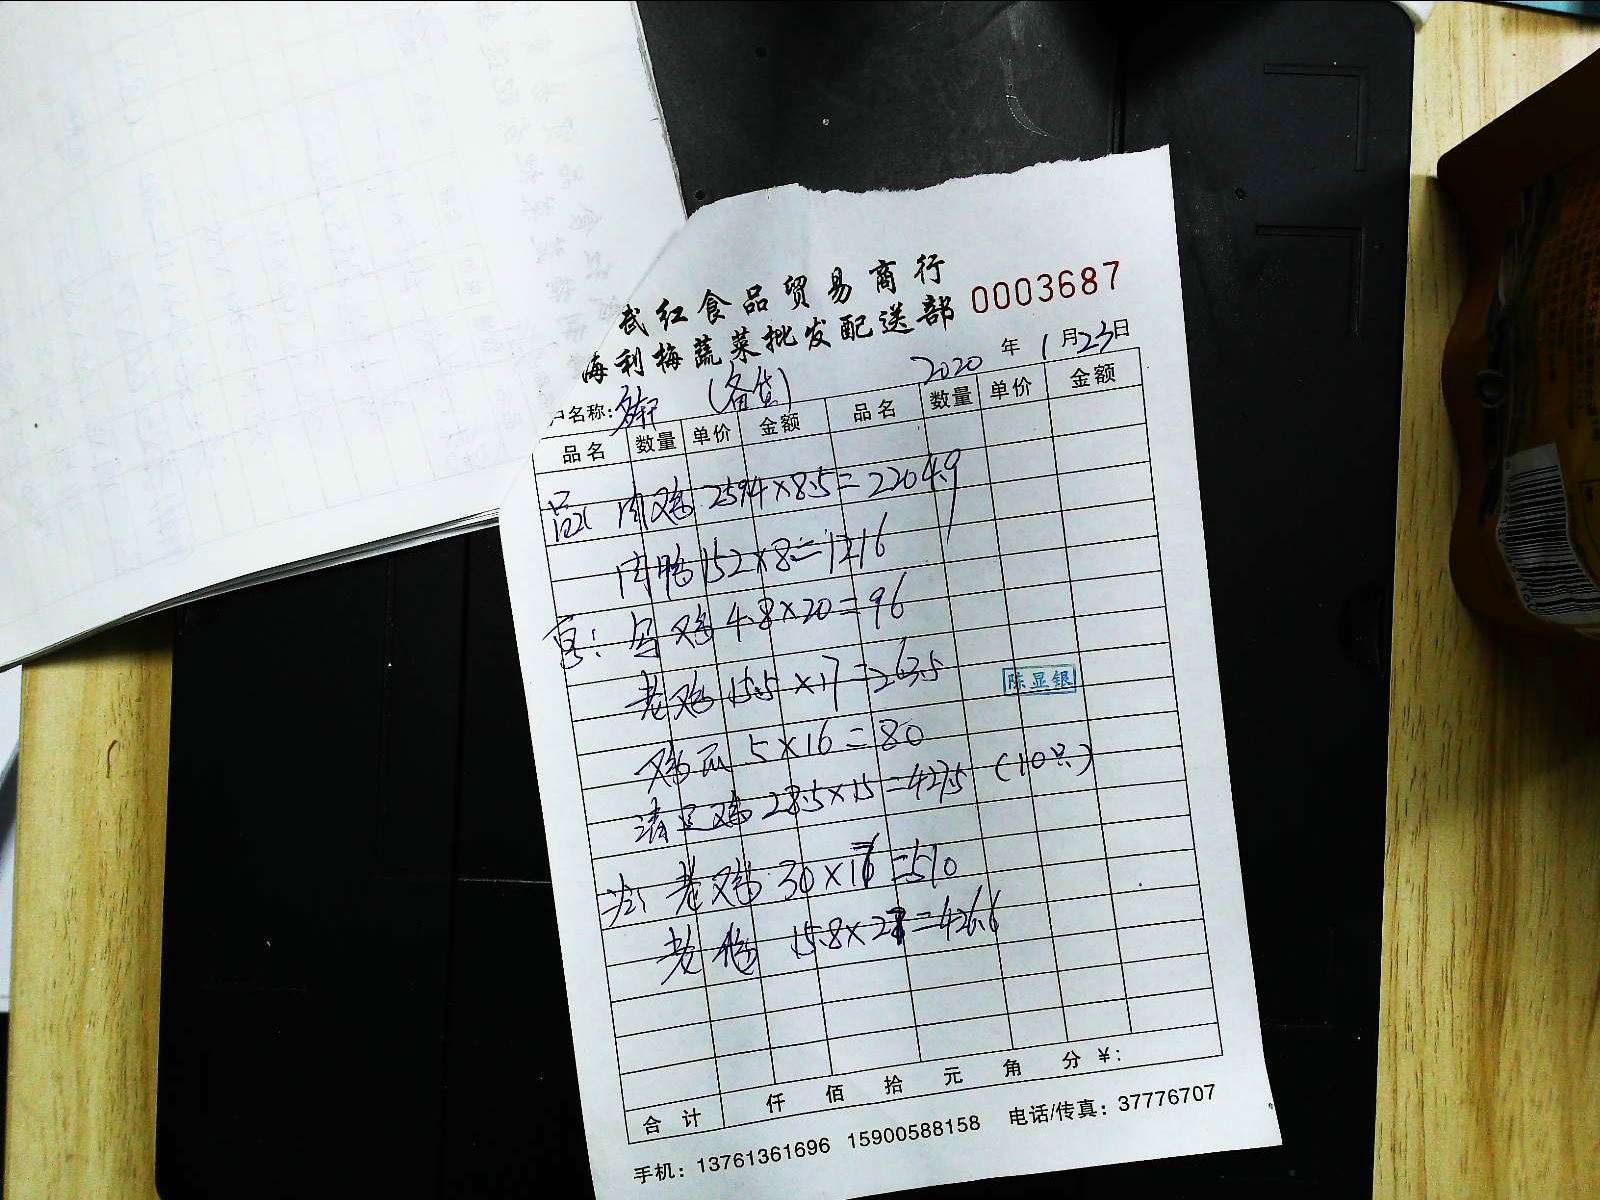 武红食品贸易商行
海利梅蔬菜批发配送部 0003687
户名称: (备货) 2020年1月23日
品名 数量 单价 金额 品名 数量 单价 金额
肉鸡 259.4×8.5=2204.9
肉鸭 152×8=1216
乌鸡 4.8×20=96
老鸡 15.5×17=263.5
陈显银
鸡爪 5×16=80
清远鸡 28.5×15=427.5 (10只)
老鸡 30×17=510
老鸭 15.8×27=426.6
合计 仟 佰 拾 元 角 分 ¥:
手机: 13761361696 15900588158 电话/传真: 37776707